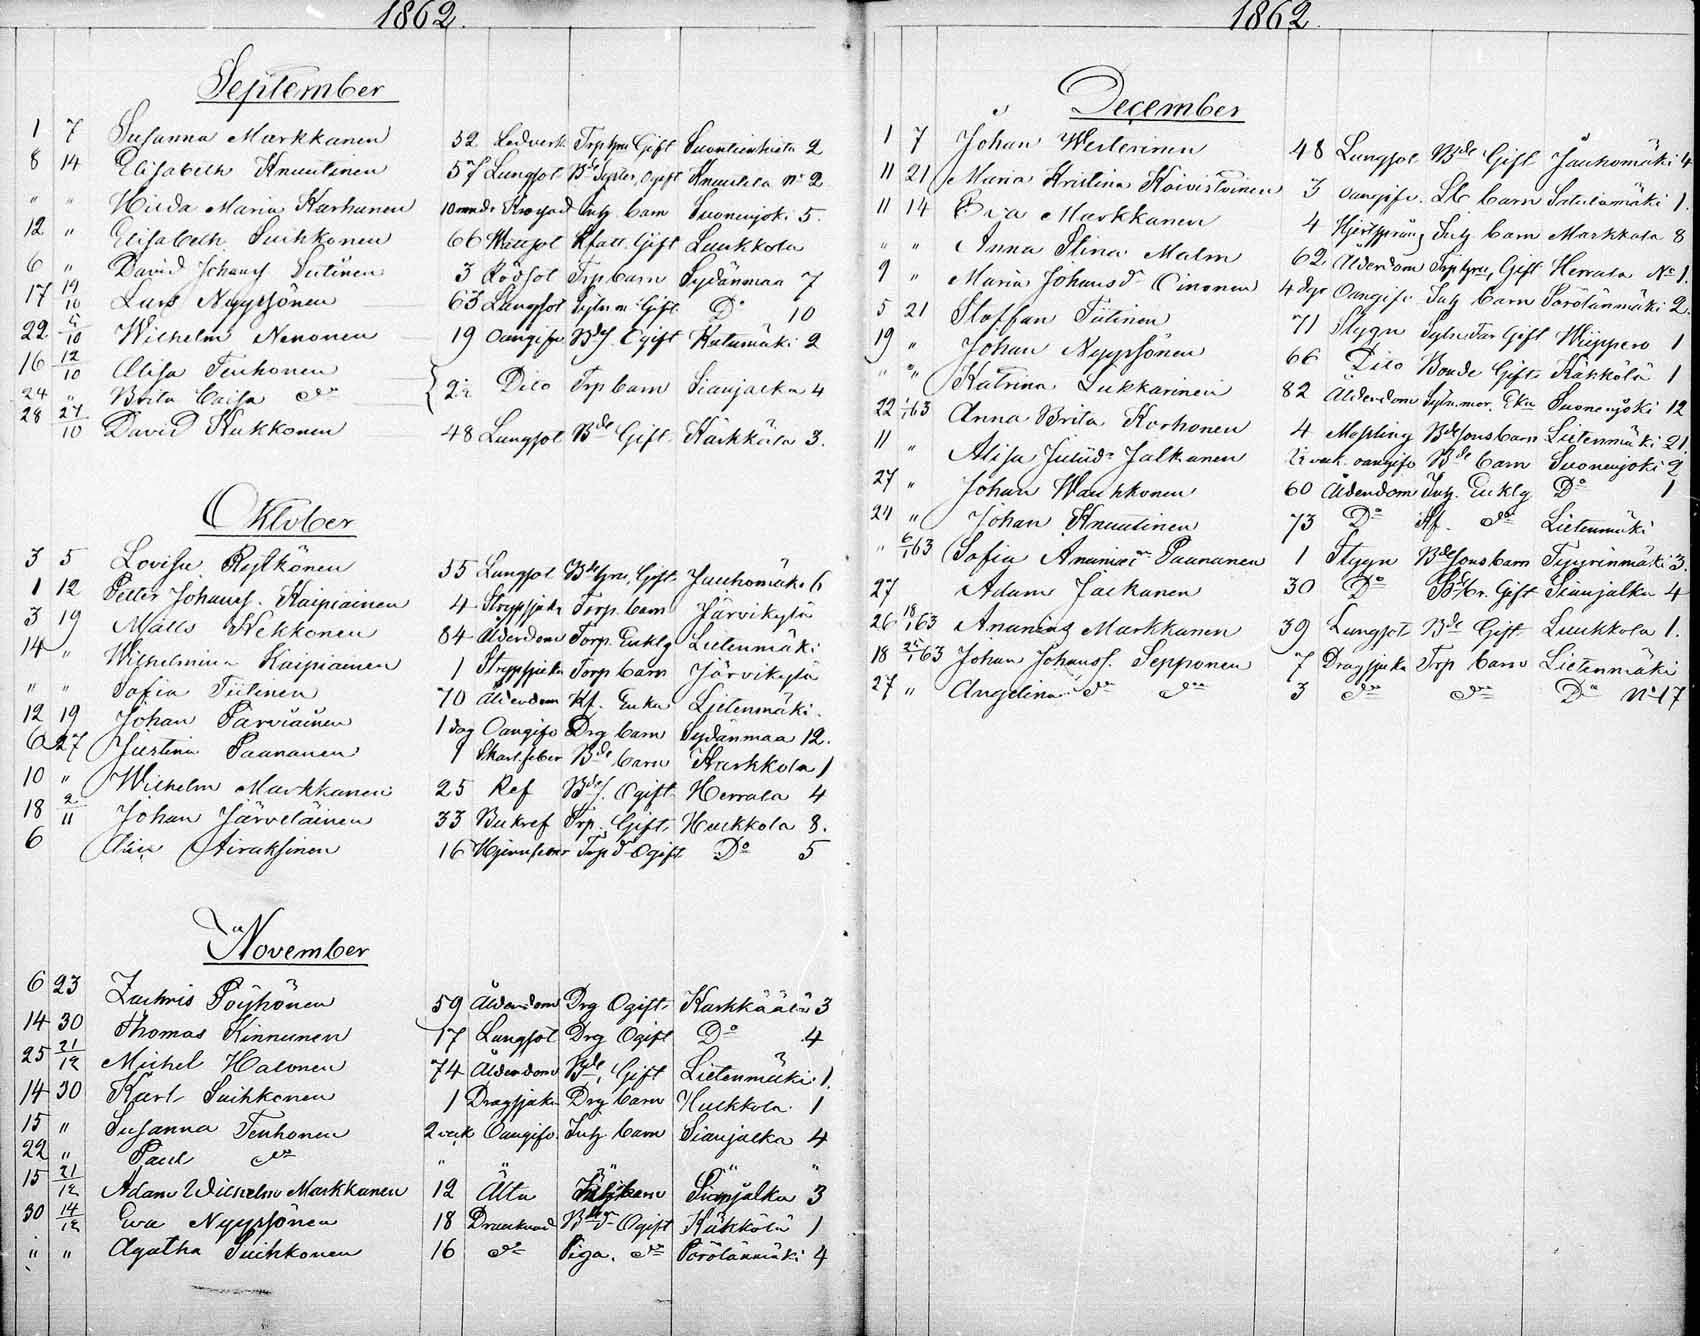 1862.
September
1 7 Susanna Markkanen 52 Ledverk Trp hru Gift Suontienhieta 2
8 14 Elisabeth Knuutinen 57 Lungsot Bde Syster, Ogift Knuutila No 2
" " Hilda Maria Karhunen 10 mndr Inh. barn Suonenjoki 5.
12 " Elisabeth Suihkonen 66 Gift Luukkola
6 " David Johanss. Tiitinen 3 Rödsot Trp barn Sydänmaa 7
17 19/10 Lars Nyyssönen 63 Lungsot Sytn.m. Gift Do 10
22 5/10 Wilhelm Nenonen 19 Oangifv Bdes. Ogift Kutumäki 2
16 12/10 Alisa Tenhonen
24 " Brita Caisa do 2½ Dito Trp barn Sianjalka 4
28 27/10 David Kukkonen 48 Lungsot Bde Gift Kärkkälä 3.
Oktober
3 5 Lovisa Rytkönen 55 Lungsot Bde hru, Gift Jauhomäki 6
1 12 Petter Johanss. Kaipiainen 4 Strypsjuka Torp. barn Järvikylä
3 19 Matts Kekkonen 84 Ålderdom Torp. Enklg Lietenmäki
14 " Wilhelmina Kaipiainen 1 Strypsjuka Torp barn Järvikylä
" " Sofia Tiitinen 70 Ålderdom Kf. Enka Lietenmäki.
12 19 Johan Parviainen 1 dag Oangifv Drg barn Sydänmaa 12.
6 27 Justina Paananen 1 Skarl.feber Bde barn 1
10 " Wilhelm Markkanen 25 Ref Bdes. Ogift Herrala 4
18 2/11 Johan Järveläinen 33 Bukref Trp. Gift Hulkkola 8.
6 Airaksinen 16 Hjernfeber Trp dr Ogift Do 5
November
6 23 Zachris Pöyhönen 59 Ålderdom Drg Ogift Karkkäälä 3
14 30 Thomas Kinnunen 17 Lungsot Drg Ogift Do 4
25 21/12 Michel Halonen 74 Ålderdom Bde, Gift Lietenmäki 1.
14 30 Karl Suihkonen 1 Dragsjuka Drg barn Hulkkola 1
15 " Susanna Tenhonen 2 veck Oangifv. Inh. barn Sianjalka 4
22 " Paul do " " " " "
15 21/12 Adam Wilhelm Markkanen 12 Älta Sianjalka 3
30 14/12 Ewa Nyyssönen 18 Drunknad Bde dr Ogift Käkkölä 1
" " Agatha Suihkonen 16 do Piga. do Pörölänmäki 4
1862.
December
1 7 Johan Westerinen 48 Lungsot Bde Gift Jauhomäki 4
11 21 Maria Kristina Koivistoinen 3 Oangifv. barn 1.
11 14 Eva Markkanen 4 Inh. barn Markkala 8
" " Anna Stina Malm 62 Ålderdom Trp hru, Gift Herrala No 1.
9 " Maria Johansdr Oinonen 4 dgr Oangifv. Inh barn Pörölänmäki 2.
5 21 Staffan Tiitinen 71 Stygn Sytn. Far Gift Wiippero 1
19 " Johan Nyyssönen 66 Dito Bonde Gift Käkkölä 1
" " Katrina Lukkarinen 82 Ålderdom Sytn. mor. Eka Suonenjoki 12
22 1/1 63 Anna Brita Korhonen 4 Messling Bde Sons barn Lietenmäki 21.
11 " Alisa Jalkanen 1½ veck. oangifv Bde barn Suonenjoki 2
27 " Johan Wauhkonen 60 Ålderdom Inh. Enklg Do 1
24 " Johan Knuutinen 73 Do Kf. do Lietenmäki
" 6/1 63 Sofia Paananen 1 Stygn Bde Sons barn Tyyrinmäki 3.
27 Adam Jalkanen 30 Do Gift Sianjalka 4
26 18/1 63 Ananias Markkanen 39 Lungsot Bde Gift Luukkola 1.
18 25/1 63 Johan Johanss. Sepponen 7 Dragsjuka Trp barn Lietenmäki
27 " Angelina do do 3 do do Do No 17